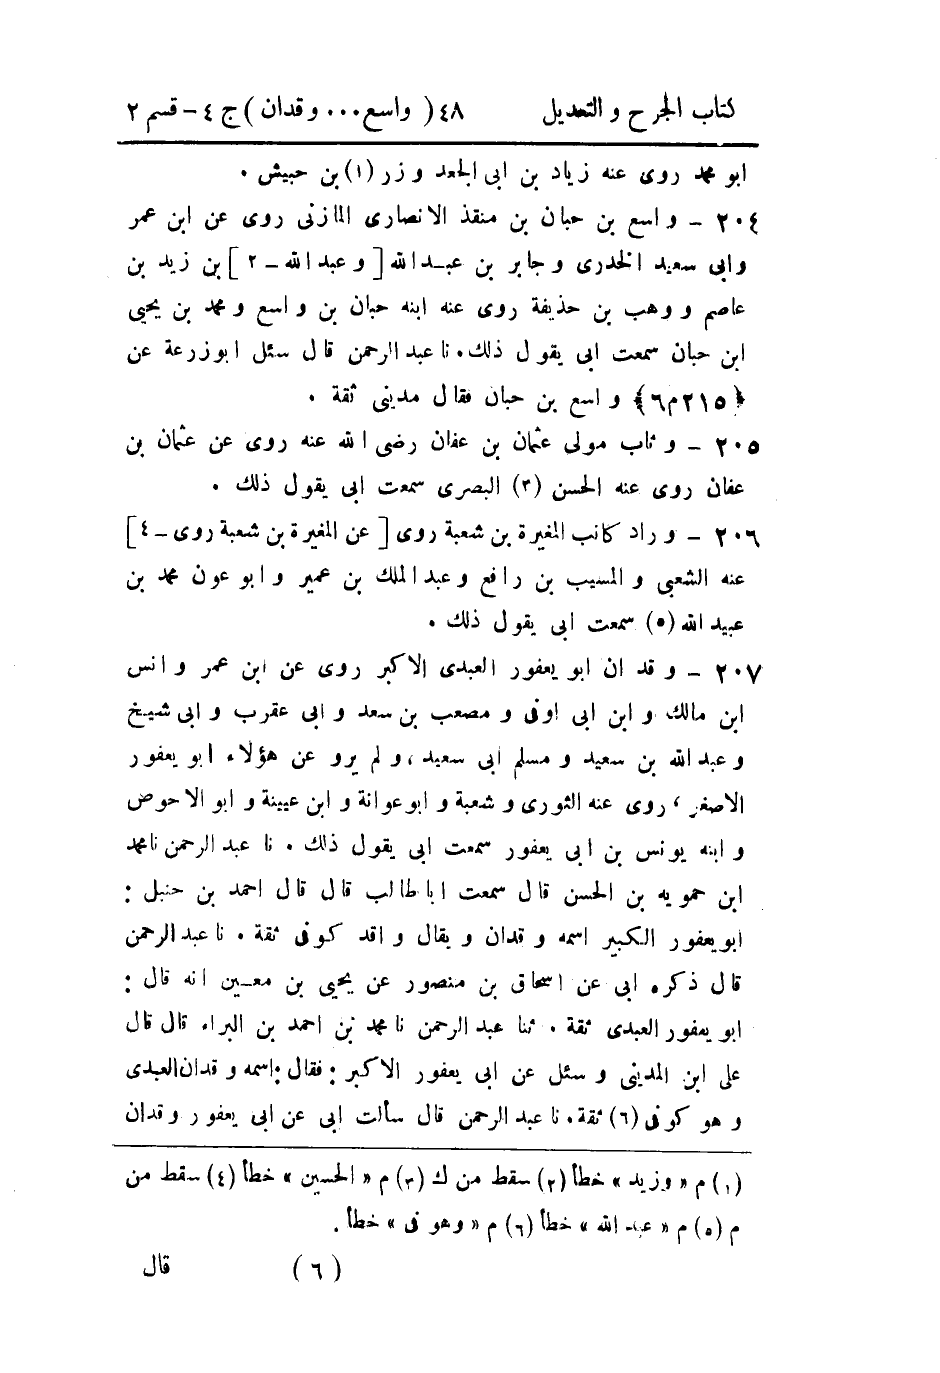 كتاب الجرح والتعديل ٤٨ ( واسع... وقدان ) ج ٤ - قسم ٢
ابو محمد روى عنه زياد بن ابى الجعد وزر (١) بن حبيش .
٢٠٤ - واسع بن حبان بن منقذ الانصارى المازنى روى عن ابن عمر
وابى سعيد الخدرى وجابر بن عبد الله [ وعبد الله - ٢ ] بن زيد بن
عاصم ووهب بن حذيفة روى عنه ابنه حبان بن واسع ومحمد بن يحيى
ابن حبان سمعت ابى يقول ذلك . نا عبد الرحمن قال سئل ابوزرعة عن
﴿٢١٥م٦﴾ واسع بن حبان فقال مدينى ثقة .
٢٠٥ - وثاب مولى عثمان بن عفان رضى الله عنه روى عن عثمان بن
عفان روى عنه الحسن (٣) البصرى سمعت ابى يقول ذلك .
٢٠٦ - وراد كاتب المغيرة بن شعبة روى [ عن المغيرة بن شعبة روى - ٤ ]
عنه الشعبى والمسيب بن رافع وعبد الملك بن عمير وابو عون محمد بن
عبيد الله (٥) سمعت ابى يقول ذلك .
٢٠٧ - وقدان ابو يعفور العبدى الاكبر روى عن ابن عمر وانس
ابن مالك وابن ابى اوفى ومصعب بن سعد وابى عقرب وابى شيخ
وعبد الله بن سعيد ومسلم ابى سعيد ، ولم يرو عن هؤلاء ابو يعفور
الاصغر ، روى عنه الثورى وشعبة وابوعوانة وابن عيينة وابو الاحوص
وابنه يونس بن ابى يعفور سمعت ابى يقول ذلك . نا عبد الرحمن نا محمد
ابن حمويه بن الحسن قال سمعت ابا طالب قال قال احمد بن حنبل :
ابو يعفور الكبير اسمه وقدان ويقال واقد كوفى ثقة . نا عبد الرحمن
قال ذكره ابى عن اسحاق بن منصور عن يحيى بن معين انه قال :
ابو يعفور العبدى ثقة . ثنا عبد الرحمن نا محمد بن احمد بن البراء قال قال
على ابن المدينى وسئل عن ابى يعفور الاكبر : فقال : اسمه وقدان العبدى
وهو كوفى (٦) ثقة . نا عبد الرحمن قال سألت ابى عن ابى يعفور وقدان
(١) م « وزيد » خطأ (٢) سقط من ك (٣) م « الحسين » خطأ (٤) سقط من
م (٥) م « عبد الله » خطأ (٦) م « وهو فى » خطأ .
(٦) قال